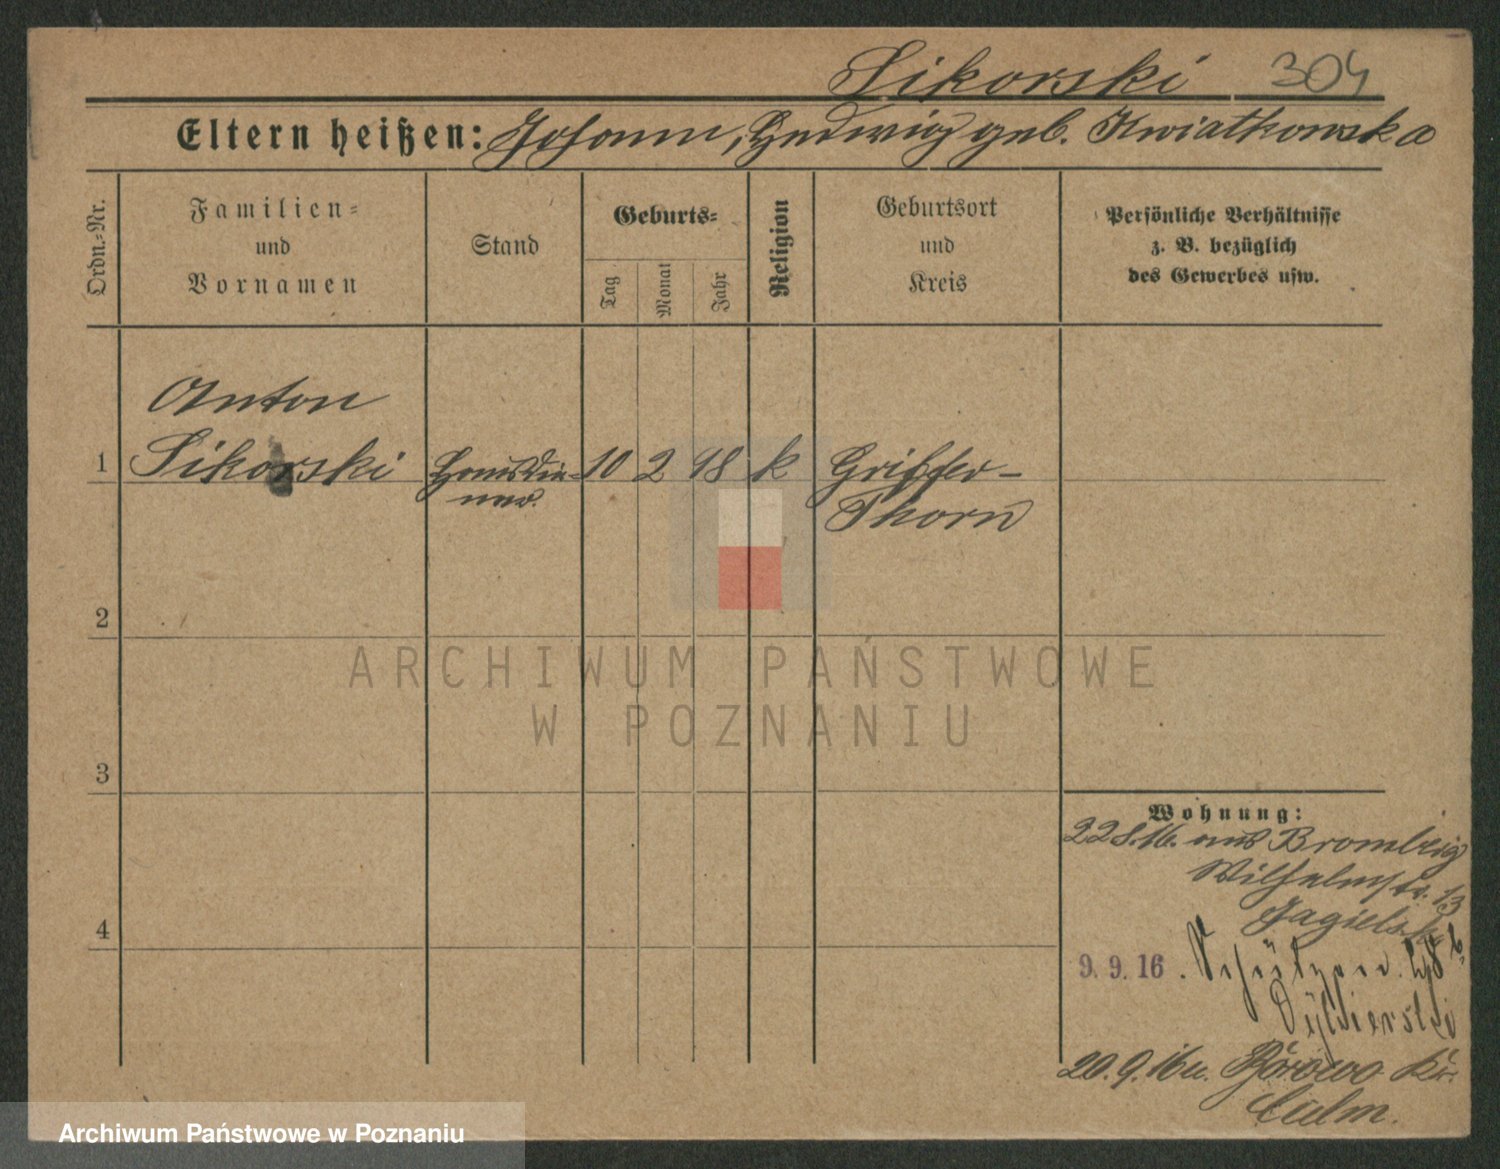 Sikorski 304
Eltern heißen: Johann, Hedwig geb. Kwiatkowska
Ordn.-Nr.
Familien-
und
Vornamen
Stand
Geburts-
Tag
Monat
Jahr
Religion
Geburtsort
und
Kreis
Persönliche Verhältnisse
z. B. bezüglich
des Gewerbes usw.
Anton
1 Sikorski Hausdie- 10 2 98 k Griffen-
ner. Thorn
2
ARCHIWUM PAŃSTWOWE
W POZNANIU
3
Wohnung:
22.8.16. aus Bromberg
Wilhelmstr. 13
Jagielski
4
9. 9. 16. Schützen
20.9.16 n. Borowo Kr.
Culm.
Archiwum Państwowe w Poznaniu